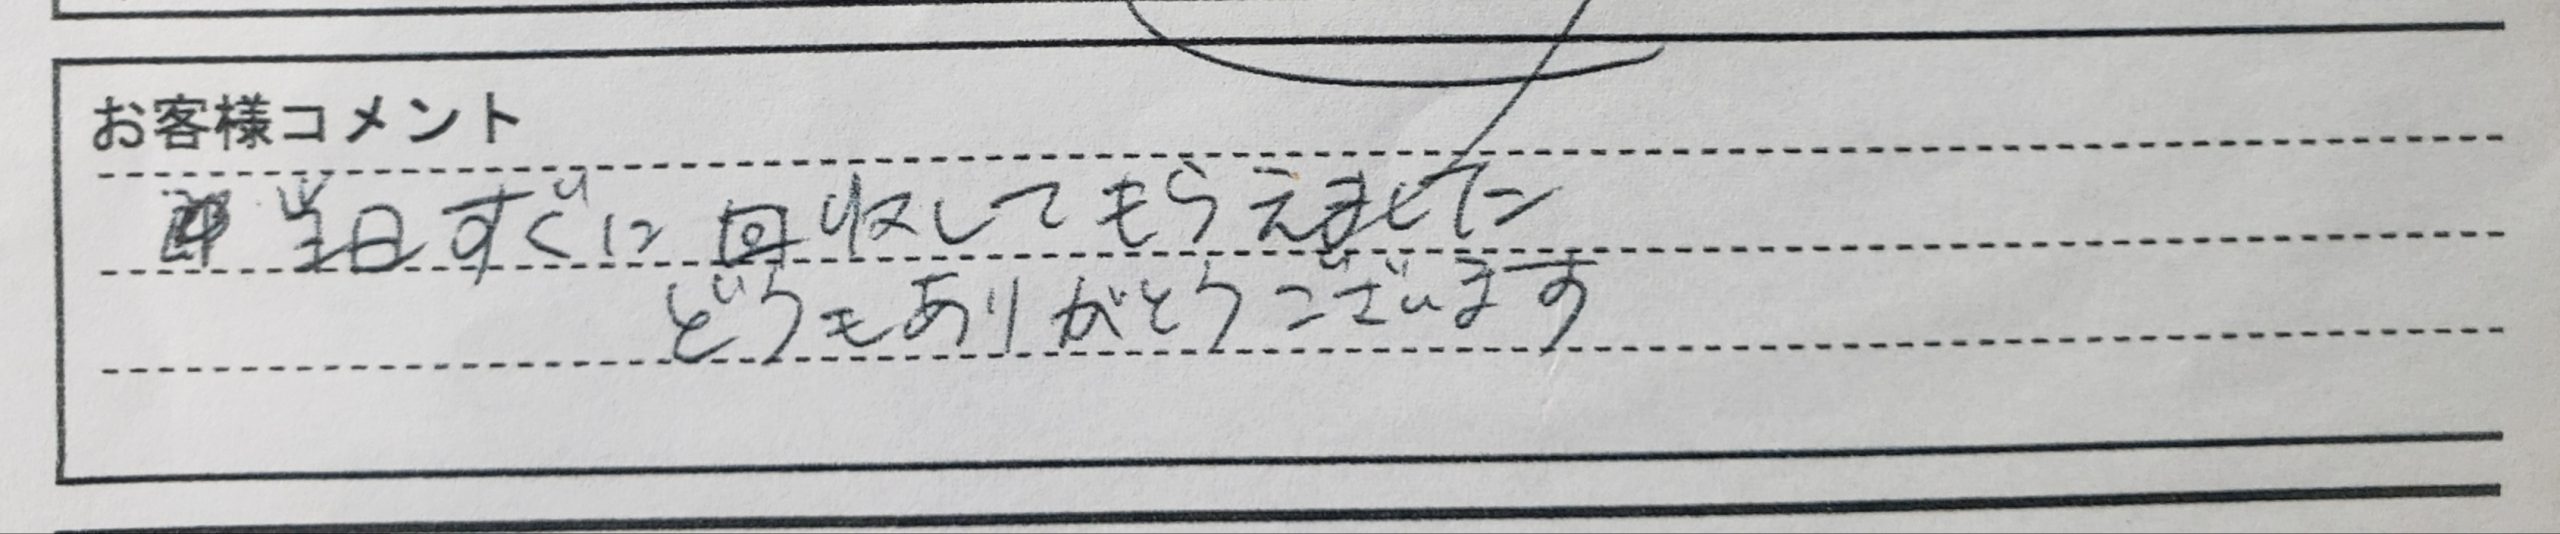 お客様コメント
当日すぐに回収してもらえました
どうもありがとうございます